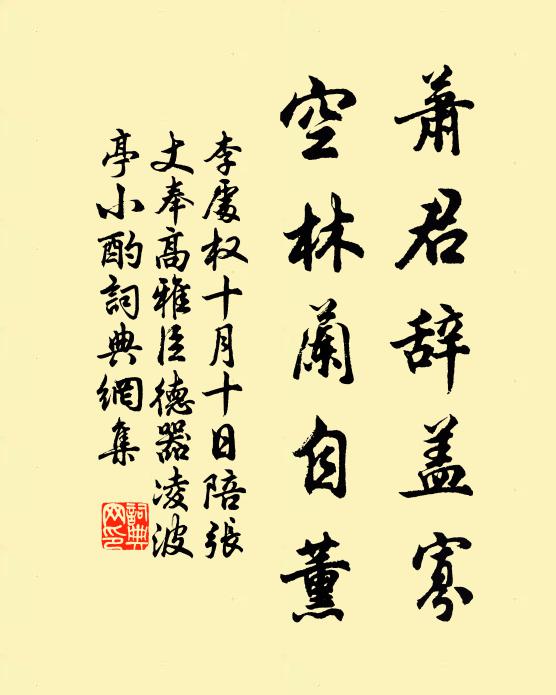 蕭君辞盖寡
空林蘭自薰
李處权十月十日陪張
丈奉高雅臣德器凌波
亭小酌詞典網集
詞典网印